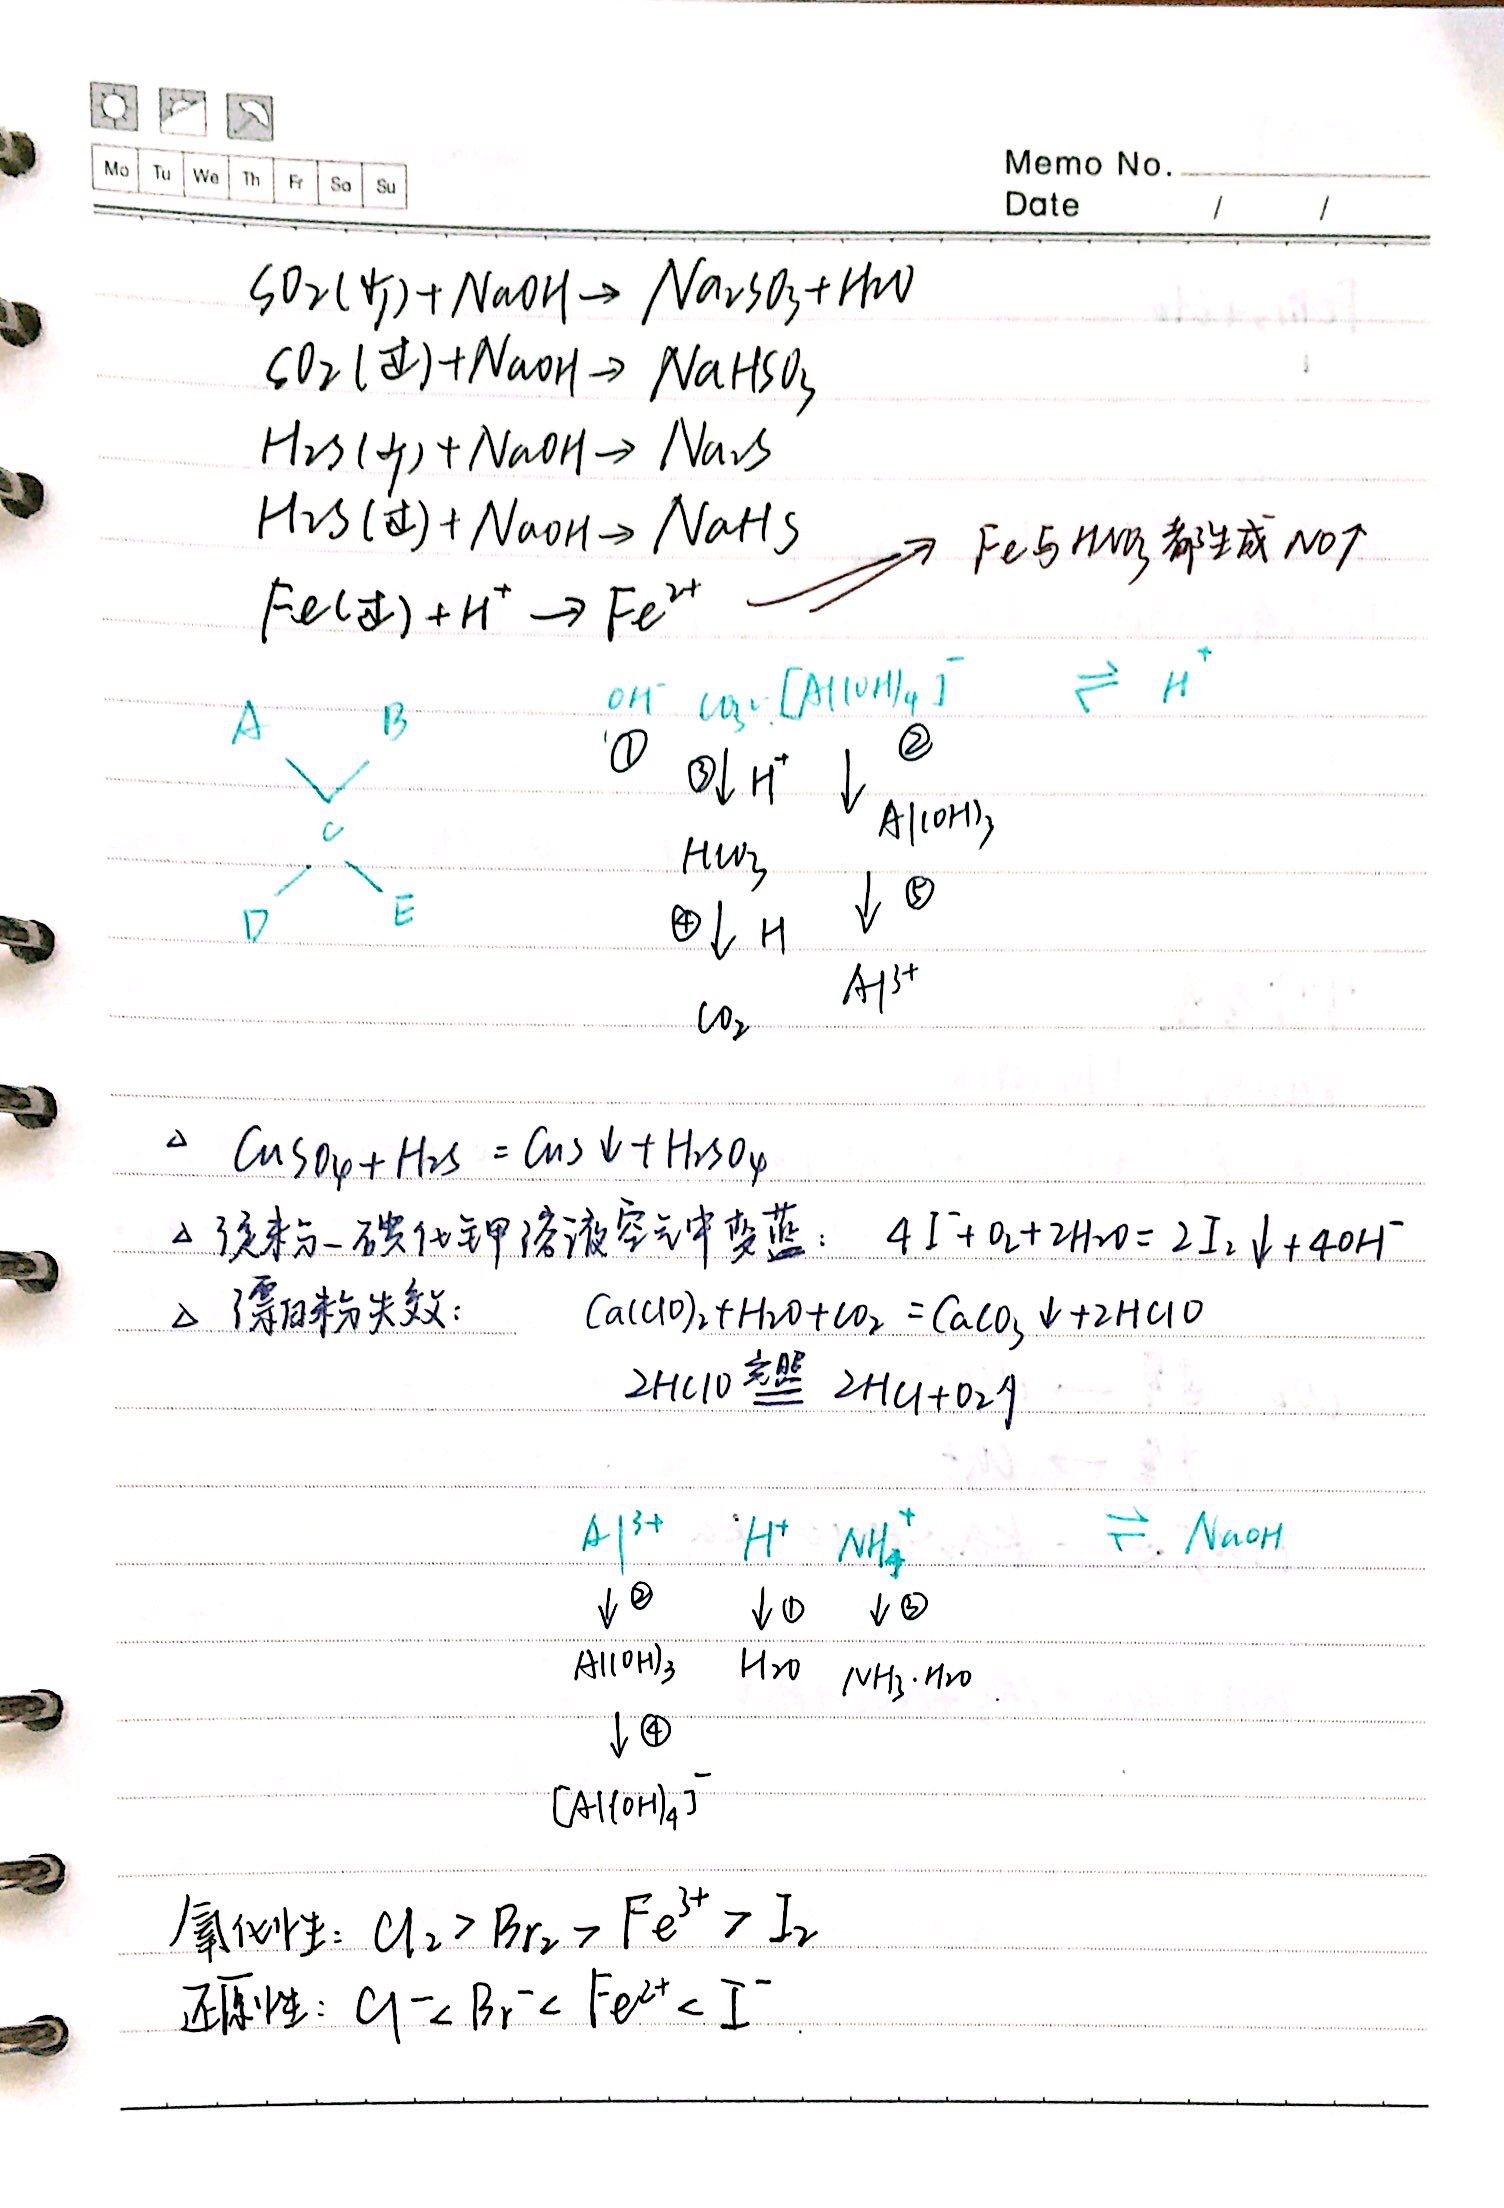 Mo Tu We Th Fr Sa Su
Memo No.
Date / /
SO2(少)+NaOH→ Na2SO3+H2O
SO2(过)+NaOH→ NaHSO3
H2S(少)+NaOH→ Na2S
H2S(过)+NaOH→ NaHS
Fe与HNO3都生成NO↑
Fe(过)+H⁺ → Fe²⁺
A B
C
D E
OH⁻ CO3²⁻ [Al(OH)4]⁻ ⇌ H⁺
① ③↓H⁺ ↓ ②
Al(OH)3
HCO3
④↓H ↓⑤
Al³⁺
CO2
△ CuSO4+H2S=CuS↓+H2SO4
△ 淀粉-碘化钾溶液空气中变蓝: 4I⁻+O2+2H2O=2I2↓+4OH⁻
△ 漂白粉失效: Ca(ClO)2+H2O+CO2=CaCO3↓+2HClO
2HClO 光照 2HCl+O2↑
Al³⁺ H⁺ NH4⁺ ⇌ NaOH
↓② ↓① ↓③
Al(OH)3 H2O NH3·H2O
↓④
[Al(OH)4]⁻
氧化性: Cl2>Br2>Fe³⁺>I2
还原性: Cl⁻<Br⁻<Fe²⁺<I⁻